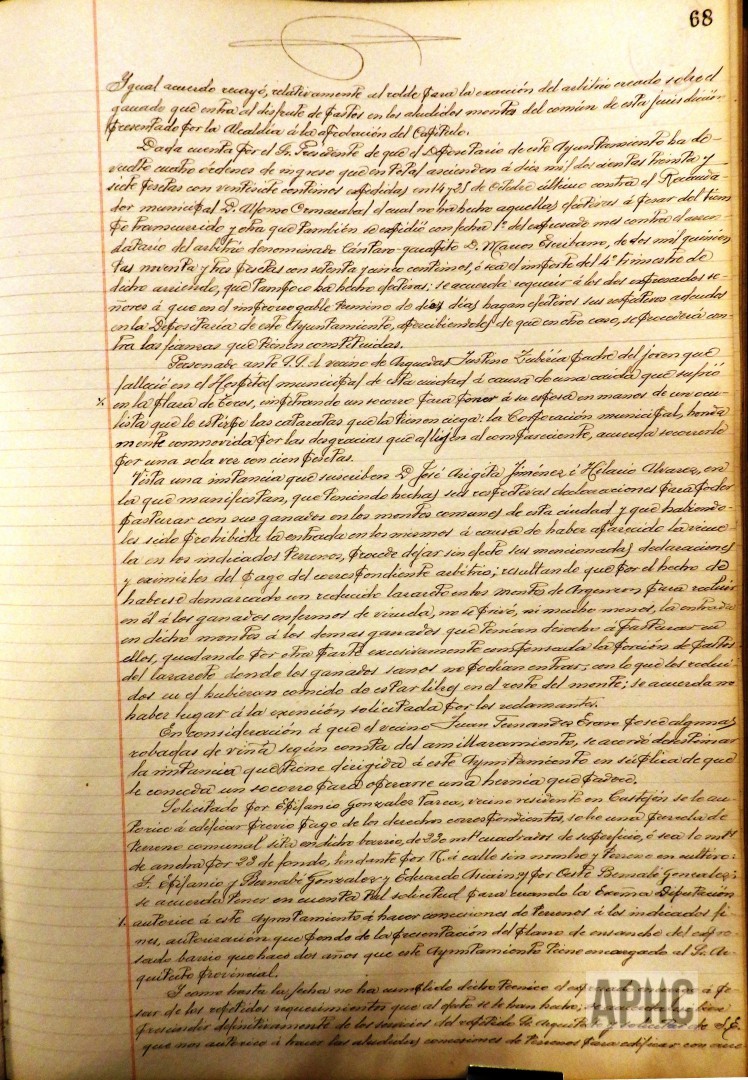 68
Igual acuerdo recayó, relativamente al rolde para la exacción del arbitrio creado sobre el
ganado que entra al disfrute de pastos en los aludidos montes del común de esta jurisdicción
presentado por la Alcaldía á la aprobación del Cabildo.
Dada cuenta por el Sr. Presidente de que el Depositario de este Ayuntamiento ha de-
vuelto cuatro órdenes de ingreso que en total ascienden á diez mil doscientas treinta y
siete pesetas con veintisiete centimos expedidas en 14 y 21 de Octubre último contra el Recauda-
dor municipal D. Alfonso el cual no ha hecho aquellas efectivas á pesar del tiem
po transcurrido y otra que tambien se expidió con fecha 1º del expresado mes contra el arren-
datario del arbitrio denominado Cántaro D. Marcos Escribano, de dos mil quinien
tas noventa y tres pesetas con setenta y cinco centimos, ó sea el importe del 4º trimestre de
dicho arriendo, que tampoco ha hecho efectivas; se acuerda requerir á los dos expresados se-
ñores á que en el improrrogable termino de diez días hagan efectivos sus respectivos adeudos
en la Depositaría de este Ayuntamiento, apercibiendoles de que en otro caso, se procederá con-
tra las fianzas que tienen constituidas.
Personase ante S.S. el vecino de Arguedas Justino Zubiría padre del joven que
falleció en el Hospital municipal de esta ciudad á causa de una caida que sufrió
en la plaza de Toros, impetrando un socorro para poner á su esposa en manos de un ocu-
lista que le extirpe las cataratas que la tienen ciega: la Corporación municipal, honda
mente conmovida por las desgracias que aflijen al compareciente, acuerda socorrerle
por una sola vez con cien pesetas.
Vista una instancia que suscriben D. José Arigita Jiménez é Hilario Alvarez, en
la que manifiestan, que teniendo hechas sus respectivas declaraciones para poder
pasturar con sus ganados en los montes comunes de esta ciudad y que habiendo-
les sido prohibida la entrada en los mismos á causa de haber aparecido la virue
la en los indicados terrenos, procede dejar sin efecto sus mencionadas declaraciones
y eximirles del pago del correspondiente arbitrio; resultando que por el hecho de
haberse demarcado un reducido lazareto en los montes de para recluir
en él á los ganados enfermos de viruela, no se privó, ni mucho menos, la entrada
en dichos montes á los demas ganados que tenían derecho á pasturar en
ellos, quedando por otra parte excesivamente compensada la porción de pastos
del lazareto donde los ganados sanos no podían entrar; con lo que los reclui-
dos en él hubieran comido de estar libres en el resto del monte; se acuerda no
haber lugar á la exención, solicitada por los reclamantes.
En consideración á que el vecino Juan Fernandez posee algunas
robadas de viña según consta del amillaramiento, se acordó desestimar
la instancia que tiene dirigida á este Ayuntamiento en súplica de que
se conceda un socorro para operarse una hernia que padece.
Solicitado por Epifanio Gonzalez vecino residente en Castejón se le au-
torice á edificar previo pago de los derechos correspondientes, sobre una parcela de
terreno comunal sita en dicho barrio, de 22 mts cuadrados de superficie, ó sea 1 mts
de ancha por 22 de fondo, lindante por N. á calle sin nombre y terreno en cultivo:
S. Epifanio y Bernabé Gonzalez y Eduardo y por Oeste Bernabé Gonzalez;
se acuerda tener en cuenta tal solicitud para cuando la Excma Diputación
autorice á este Ayuntamiento á hacer concesiones de terrenos á los indicados fi-
nes, autorización que pende de la presentación del plano de ensanche del expre-
sado barrio que hace dos años que este Ayuntamiento tiene encargado al Sr. Ar-
quitecto provincial.
Y como hasta la fecha no ha cumplido dicho técnico el á pe-
sar de los repetidos requerimientos que al efecto se le han hecho,
prescindir definitivamente de los servicios del repetido Sr. Arquitecto de S.E.
que nos autorice á hacer las aludidas concesiones de terrenos para edificar con
APHC